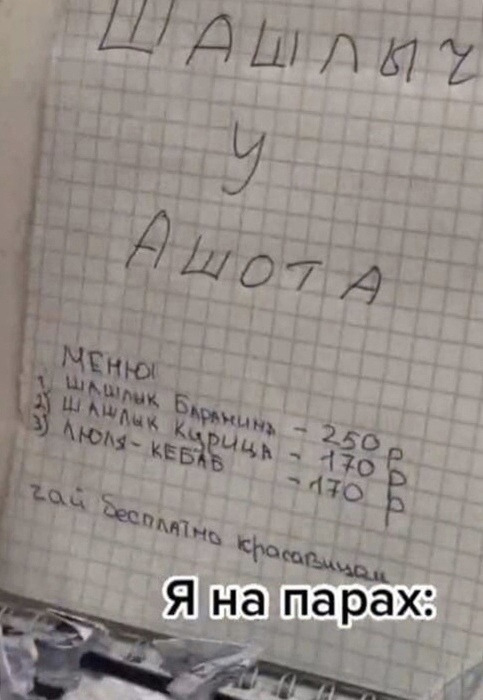 ШАШЛЫЧ
У
АШОТА
МЕНЮ
1) ШАШЛЫК БАРАНИНА - 250 р
2) ШАШЛЫК КУРИЦА - 170 р
3) ЛЮЛЯ-КЕБАБ - 170 р
чай бесплатно красавицам
Я на парах: